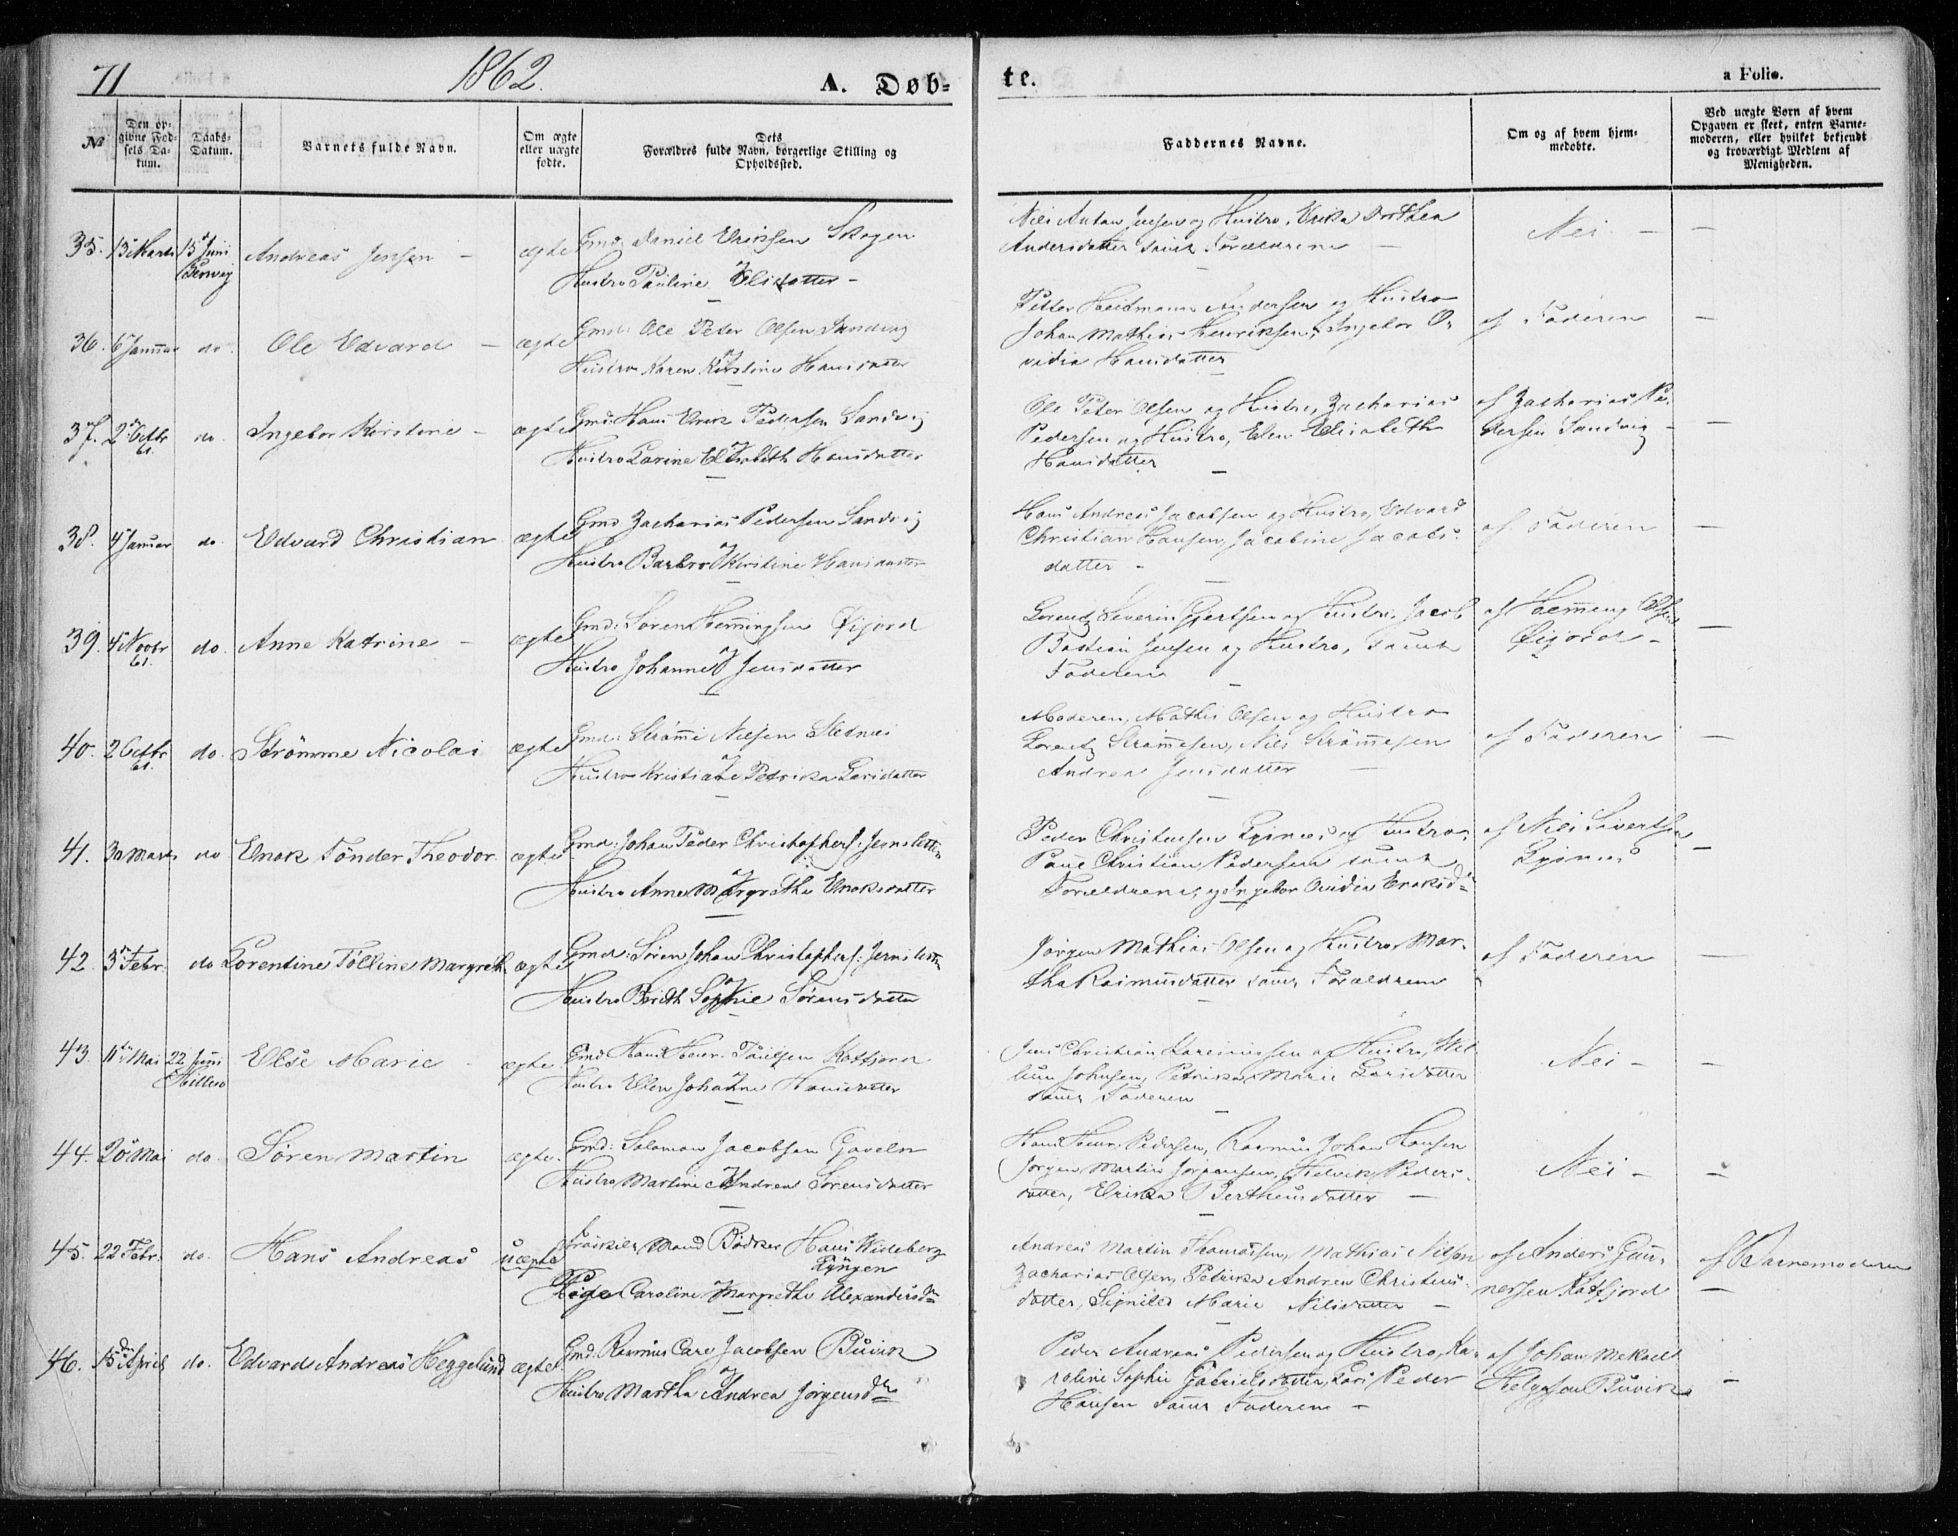 71
1862.
A. Døb-
te.
a Folio.
No
Den op-
givne Fød-
sels Da-
tum.
Daabs-
Datum.
Barnets fulde Navn.
Om ægte
eller uægte
fødte.
Dets
Forældres fulde Navn, borgerlige Stilling og
Opholdssted.
Faddernes Navne.
Om og af hvem hjem-
medøbte.
Ved uægte Børn af hvem
Opgaven er skeet, enten Barne-
moderen, eller hvilket bekjendt
og troværdigt Medlem af
Menigheden.
35. 15 Marts 15 Juni
Andreas Jensen - ægte
Gmd: Daniel Eriksen Skogen
og
Hustro Pauline Olsdatter -
Nils Anton Jensen og Hustro, Erika Dorthea
Andersdatter samt Forældrene -
Nei - -
36. 6 Januar do. Ole Edvard - ægte
Gmd: Ole Peter Olsen Sandvig
og
Hustro Karen Kirstine Hansdatter
Petter Heitmann Andersen og Hustro
Johan Mathias Henriksen, Ingebor O-
vidia Hansdatter
af Faderen -
37. 2 Octbr 61. do. Ingebor Kirstine - ægte
Gmd: Hans Erik Pedersen Sandvig
og
Hustro Lavine Elisabeth Hansdatter
Ole Peter Olsen og Hustro, Zacharias
Pedersen og Hustro, Elen Elisabeth
Hansdatter -
af Zacharias Pe-
dersen Sandvig - -
38. 4 Januar do. Edvard Christian ægte
Gmd Zacharias Pedersen Sandvig
og
Hustro Barbro Kirstine Hansdatter
Hans Andreas Jacobsen og Hustro, Edvard
Christian Hansen, Jacobine Jacobs-
datter -
af Faderen -
39. 4 Novbr 61. do. Anne Katrine - ægte
Gmd: Søren Hemingsen Øijord
og
Hustro Johanne Jensdatter
Lorentz Severin Gjertsen og Hustro, Jacob
Bastian Jensen og Hustro, samt
Faderen -
af Hemming Olsen
Øijord - -
40. 2 Octbr 61. do. Strømme Nicolai ægte
Gmd: Strømme Nilsen Sletnes
og
Hustro Kristiane Petrika Larsdatter
Moderen, Mathis Olsen og Hustro
Lorentz Strømmesen, Nils Strømmesen
Andrea Jensdatter -
af Faderen -
41. 30 Marts do Enok Tønder Theodor ægte
Gmd: Johan Peder Christophers: Jernsletten
og
Hustro Anne Margrethe Enoksdatter
Peder Christensen og Hustro,
Christian Pedersen samt
Forældrene, og Ingebor Ovidia Enoksd:
af Nils Sivertsen
-
42. 3 Febr. do Lorentine Tølline Margreth ægte
Gmd: Søren Johan Christophers: Jernsletten
og
Hustro Berith Sophie Sørensdatter
Jørgen Mathias Olsen og Hustro, Mar-
tha Rasmusdatter samt Forældrene
af Faderen -
43. 11te Mai 22 Juni
Hillesø
Else Marie - ægte.
Gmd Hans Henr. Paulsen Katfjord
og
Hustro Elen Johanne Hansdatter
Jens Christian og Hustro, Wil-
Johnsen, Petrika Marie Larsdatter
samt Faderen
Nei - -
44. 20 Mai do Søren Martin ægte.
Gmd: Salomon Jacobsen Gaveln
og
Hustro Martine Andrea Sørensdatter
Hans Henr. Pedersen, Rasmus Johan Hansen
Jørgen Martin Jørgensen, Peders-
datter, Erika Bertheusdatter -
Nei - -
45. 22 Febr. do. Hans Andreas uægte
Mand Bødker Hans Wideberg
Lyngen
og
Pige Caroline Margrethe Alexandersd:
Andreas Martin Thomassen, Mathias Nilsen
Zacharias Olsen, Petrika Andrea Christens-
datter, Marie Nilsdatter -
af Anders Gun-
nersen Katfjord
af Barnemoderen
-
46. 15de April do. Edvard Andreas Heggelund ægte
Gmd: Rasmus Carl Jacobsen Buvik
og
Hustro Martha Andrea Jørgensdtr
Peder Andreas Pedersen og Hustro, Ka-
roline Sophie Gabrielsdatter, Lars Peder
Hansen samt Faderen -
af Johan Mekael
Helgesen Buvik
-